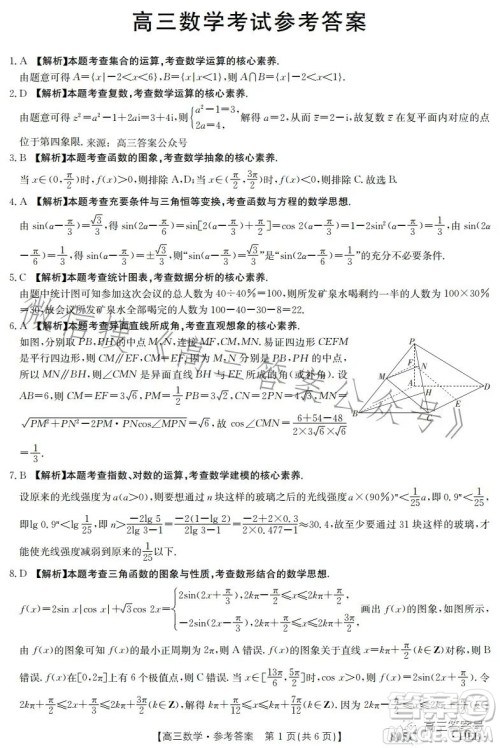 高三数学考试参考答案
1. A 【解析】本题考查集合的运算,考查数学运算的核心素养.
由题意可得 A={x|-2<x<6},B={x|x<1},则 A∩B={x|-2<x<1}.
2. D 【解析】本题考查复数,考查数学运算的核心素养.
由题意可得 z²=a²-1+2ai=3+4i,则{a²-1=3, 2a=4, 解得 a=2,从而 z̄=2-i,故 z̄ 在复平面内对应的点
位于第四象限. 来源:高三答案公众号
3. B 【解析】本题考查函数的图象,考查数学抽象的核心素养.
当 x∈(0,π/2)时,f(x)>0,则排除 A,D;当 x∈(π/2,3π/2)时,f(x)<0,则排除 C.故选 B.
4. A 【解析】本题考查充要条件与三角恒等变换,考查函数与方程的数学思想.
由 sin(a-π/3)=√3/3,得 sin(2a-π/6)=sin[2(a-π/3)+π/2]=cos2(a-π/3)=1-2sin²(a-π/3)=1/3,由 sin(2a
-π/6)=1/3,得 sin(a-π/3)=±√3/3,则“sin(a-π/3)=√3/3”是“sin(2a-π/6)=1/3”的充分不必要条件.
5. C 【解析】本题考查统计图表,考查数据分析的核心素养.
由题中统计图可知参加这次会议的总人数为 40÷40%=100,则所发矿泉水喝剩约一半的人数为 100×30%
=30.
6. A 【解析】本题考查异面直线所成角,考查直观想象的核心素养.
如图,分别取 PB,PH 的中点 M,N,连接 MF,CM,MN.易证四边形 CEFM
是平行四边形,则 CM∥EF,CM=EF.因为 M,N 分别是 PB,PH 的中点,
所以 MN∥BH,则∠CMN 是异面直线 BH 与 EF 所成的角(或补角).设
AB=6,则 CM=EF=3√6,PM=3,PN=2√3,CN=4√3,MN=
√PM²+PN²-2PM·PNcos∠MPN=√6,故 cos∠CMN=6+54-48/2×3√6×√6
=1/3.
7. B 【解析】本题考查指数、对数的运算,考查数学建模的核心素养.
设原来的光线强度为 a(a>0),则要想通过 n 块这样的玻璃之后的光线强度 a×(90%)ⁿ<1/25 a,即 0.9ⁿ<1/25,
即 lg 0.9ⁿ<lg 1/25,即 n>-2lg 5/2lg 3-1=-2(1-lg 2)/2lg 3-1≈-2+2×0.3/2×0.477-1≈30.4,故至少需要经过 31 块这样的玻璃之后,才
能使光线强度减弱到原来的 1/25 以下.
8. D 【解析】本题考查三角函数的图象与性质,考查数形结合的数学思想.
f(x)=2sin x|cos x|+√3cos2x={2sin(2x+π/3),2kπ-π/2≤x≤2kπ+π/2, 2sin(2x+2π/3),2kπ+π/2<x≤2kπ+3π/2, 画出 f(x)的图象,如图所示.
由 f(x)的图象可知 f(x)的最小正周期为 2π,则 A 错误.f(x)的图象关于直线 x=kπ+π/2(k∈Z)对称,则 B
错误.f(x)在[0,2π]上有 6 个极值点,则 C 错误.当 x∈[13π/6,5π/2]时,f(x)单调递减,此时,f(x)=2sin(2x+π/3),
令 2kπ+π/2≤2x+π/3≤2kπ+3π/2(k∈Z),解得 kπ+π/12≤x≤kπ+7π/12(k∈Z).当
【高三数学·参考答案 第 1 页(共 6 页)】
微信搜《高三答案公众号》
高三答案号